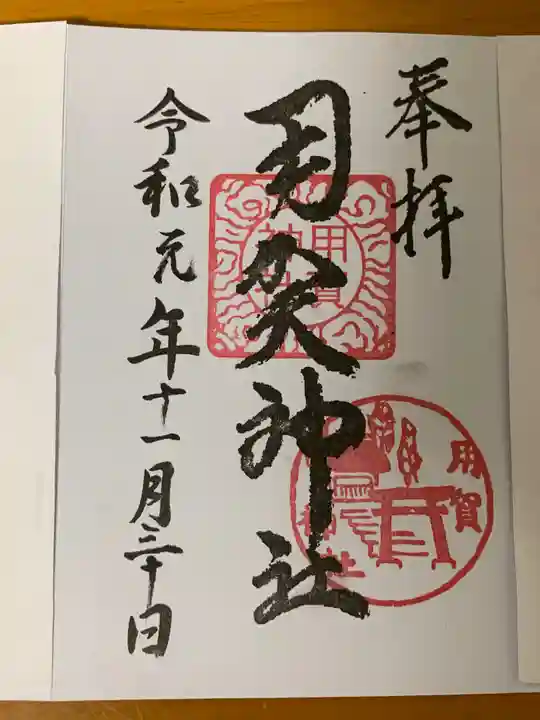 奉拝
用賀神社
令和元年十一月三十日
用賀
神社
用賀
神社